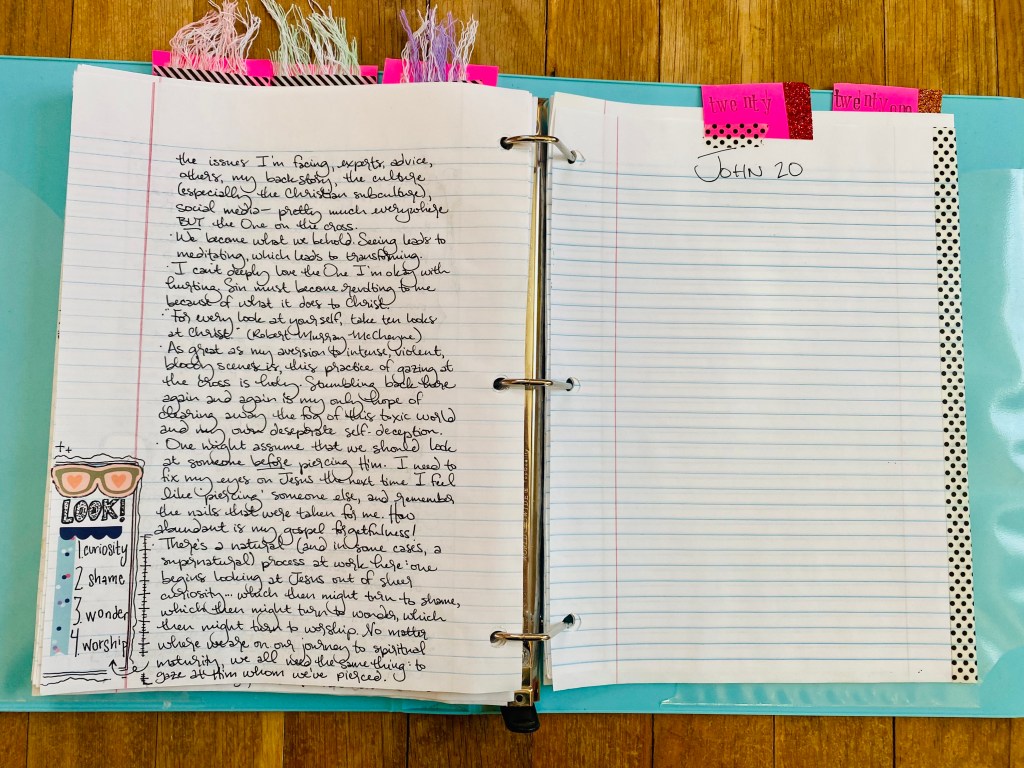 the issues I'm facing, experts, advice,
others, my backstory, the culture
(especially the Christian subculture),
social media - pretty much everywhere
BUT the One on the cross.
· We become what we behold. Seeing leads to
meditating, which leads to transforming.
· I can't deeply love the One I'm okay with
hurting. Sin must become revolting to me
because of what it does to Christ.
· "For every look at yourself, take ten looks
at Christ." (Robert Murray McCheyne)
· As great as my aversion to intense, violent,
bloody scenes is, this practice of gazing at
the cross is holy. Stumbling back here
again and again is my only hope of
clearing away the fog of this toxic world
and my own deseparate self-deception.
· One might assume that we should look
at someone before piercing Him. I need to
fix my eyes on Jesus the next time I feel
like 'piercing' someone else, and remember
the nails that were taken for me. How
abundant is my gospel forgetfulness!
· There's a natural (and in some cases, a
supernatural) process at work here: one
begins looking at Jesus out of sheer
curiosity... which then might turn to shame,
which then might turn to wonder, which
then might turn to worship. No matter
where we are on our journey to spiritual
maturity, we all need the same thing: to
gaze at Him whom we've pierced.
LOOK!
1. curiosity
2 shame
3. wonder
4. worship
twenty
twenty one
JOHN 20